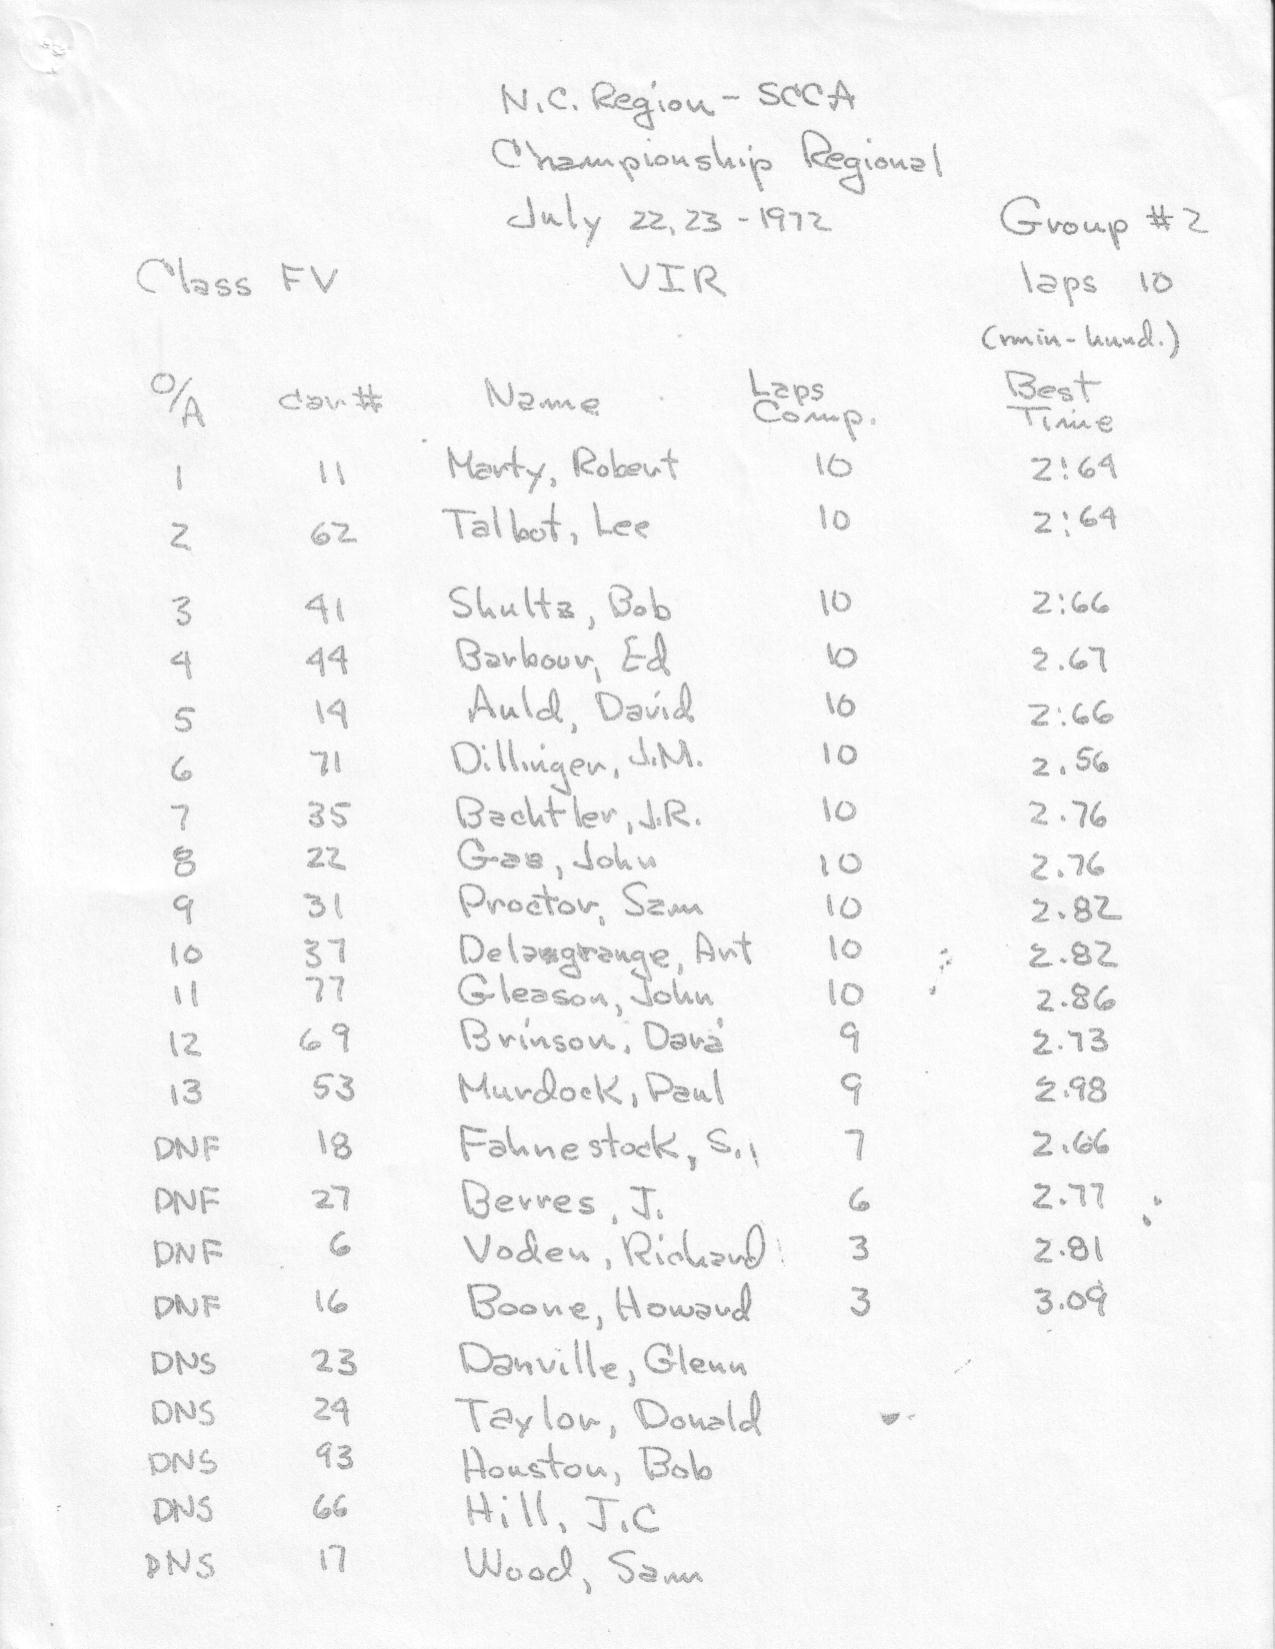 N.C. Region - SCCA
Championship Regional
July 22, 23 - 1972 Group #2
Class FV VIR laps 10
(min - hund.)
O/A car # Name Laps Comp. Best Time
1 11 Marty, Robert 10 2:64
2 62 Talbot, Lee 10 2:64
3 41 Shultz, Bob 10 2:66
4 44 Barbour, Ed 10 2.67
5 14 Auld, David 10 2:66
6 71 Dillinger, J.M. 10 2.56
7 35 Bachtler, J.R. 10 2.76
8 22 John 10 2.76
9 31 Proctor, Sam 10 2.82
10 37 Delagrange, Art 10 2.82
11 77 Gleason, John 10 2.86
12 69 Brinson, 9 2.73
13 53 Murdock, Paul 9 2.98
DNF 18 Fahnestock, S. 7 2.66
DNF 27 Berres, J. 6 2.77
DNF 6 Voden, Richard 3 2.81
DNF 16 Boone, Howard 3 3.09
DNS 23 Danville, Glenn
DNS 24 Taylor, Donald
DNS 93 Houston, Bob
DNS 66 Hill, J.C
DNS 17 Wood, Sam